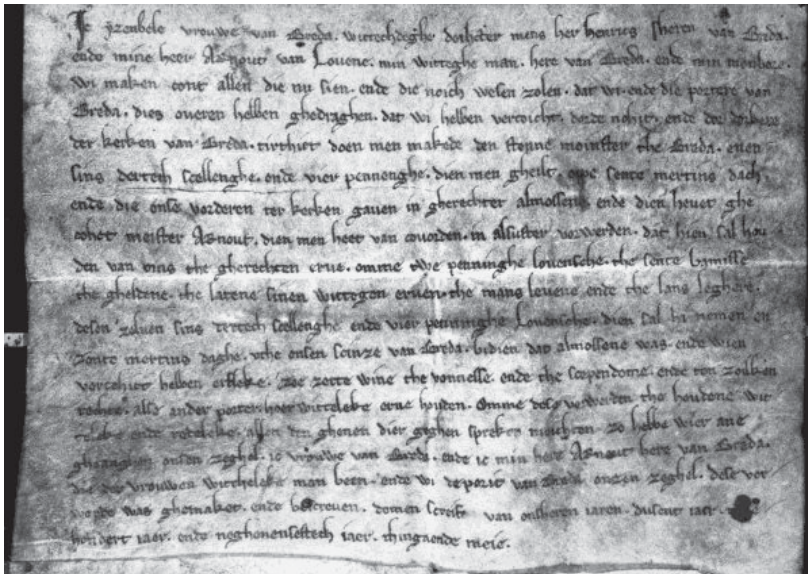 Ic yzenbele vrouwe van Breda. wittechdeghe dochter mens her henrics sheren van Breda.
ende mine heer Arnout van Lovene. min witteghe man. here van Breda. ende min monbore.
wi maken cont allen die nu sien. ende die noich wesen zolen. dat wi. ende die portere van
Breda. dies overen hebben ghedraghen. dat wi hebben vercoicht. dorde nohit. ende dor
ter kerken van Breda. doen men makede den moinster the Breda. enen
sins dertech scellenghe. ende vier pennenghe. dien men gheilt. oppe sente mertins dach.
ende. die onse vorderen ter kerken gaven in gherechter almossene. ende dien hevet ghe
cohet meister Arnout. dien men heet van covorden. in alsulker vorwerden. dat hien sal hou
den van oins the gherechten erve. omme twe penninghe lovensche. the sente bamisse
the gheldene. the latene sinen wittegen erven. the mans levene ende the lans leghere.
desen zelven sins tertech scellenghe ende vier penninghe Lovensche. dien sal hi nemen en
zonte mertins daghe. vthe onsen scinze van Breda. bidien dat almossene was. ende wien
vercohit hebben erfleke. zoe zette wine the vonnesse. ende the scependome. ende ten zulken
rechte. alse ander porters hoer witteleke erve houden. Omme dese vorwerden the houdene wit
ende allen den ghenen dier geghen spreken moichten. zo hebbe wier ane
ghehanghen onsen zeghel. ic vrouwe van Breda. ende ic min here Arnout here van Breda.
die der vrouwen wittheleke man been. ende wi de porte van Breda onzen zeghel. dese vor
worde was ghemaket. ende bescreven. domen screif van onsheren iaren. dusent iaer.
hondert iaer. ende neghonensestech iaer. thingaende meie.